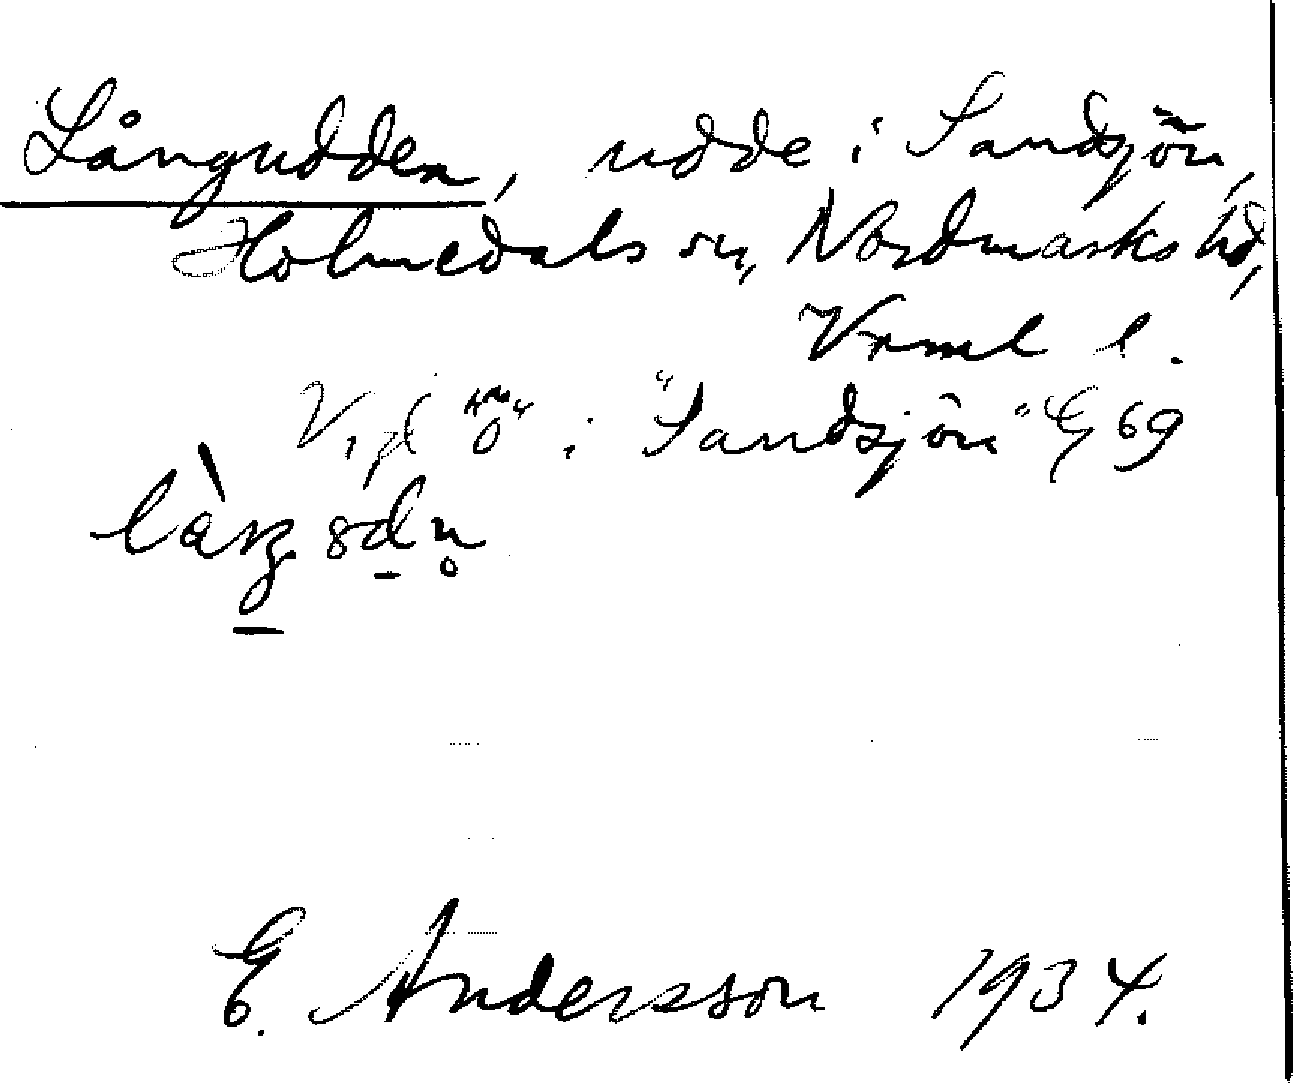 Långudden, udde i Sandsjön,
Holmedals sn, Nordmarks hd,
Vrml l.
V. gd "ö" i "Sandsjön" E 69
E. Andersson 1934.